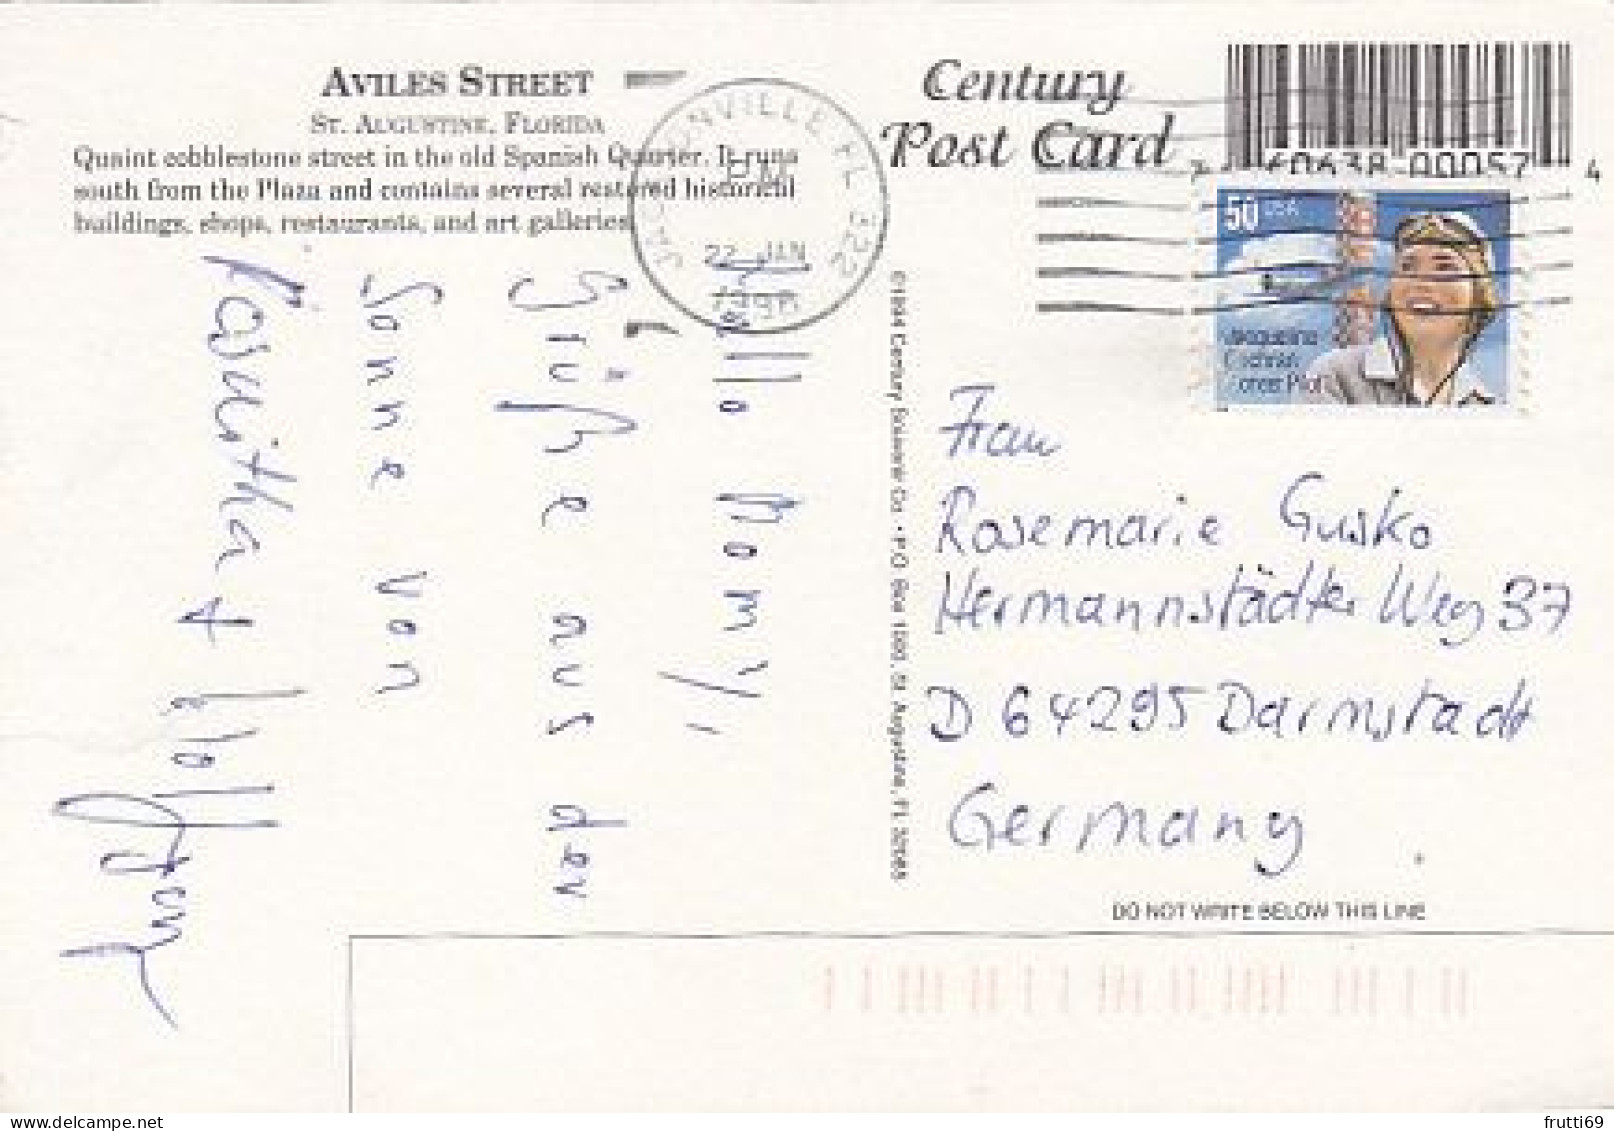 AVILES STREET
ST. AUGUSTINE, FLORIDA
Quaint cobblestone street in the old Spanish Quarter. It runs
south from the Plaza and contains several restored historical
buildings, shops, restaurants, and art galleries.
Century
Post Card
JACKSONVILLE FL 322
PM
22 JAN
1998
50 USA
Jacqueline
Cochran
Pilot
Hallo Momy,
Grüße aus der
Sonne von
©1994 Century Souvenir Co. • P.O. Box
St. Augustine, FL 32085
Frau
Rosemarie Gusko
Hermannstädter Weg 37
D 64295 Darmstadt
Germany
DO NOT WRITE BELOW THIS LINE
frutti69